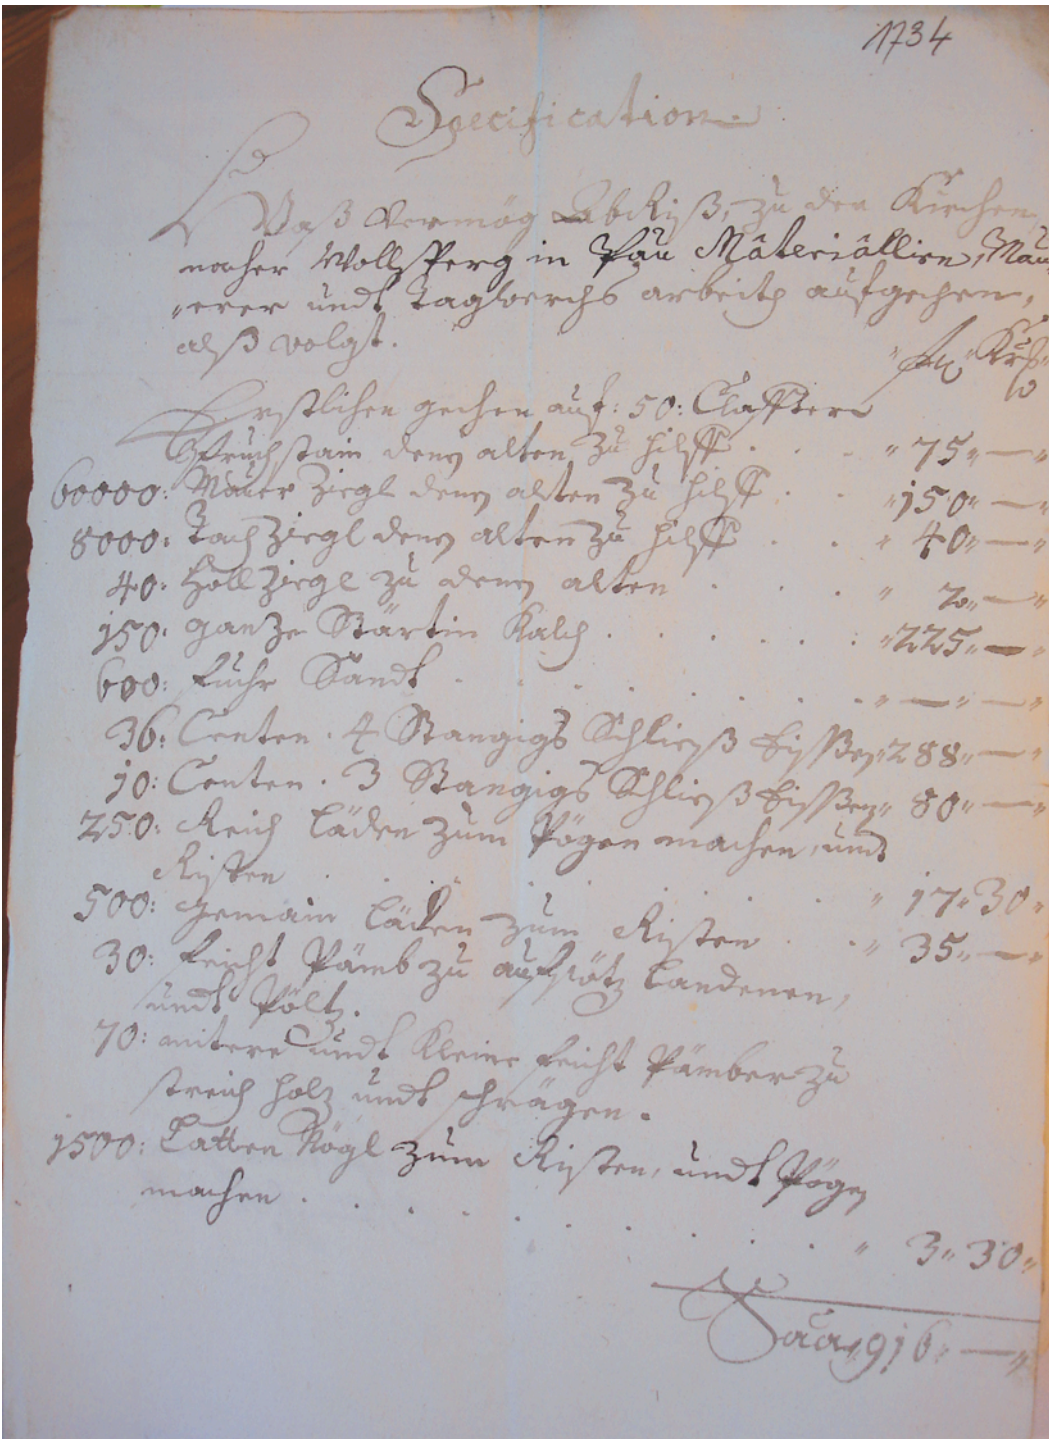 1734
Specification
Waß Vermög AbRiß, zu der Kirchen
nacher Wollsperg in Pau Materiallien, Mau
"erer undt Tagwerchs arbeith aufgehen,
alß volgt.
fl Kr
Erstlichen gehen auf: 50: Claffter
Pruchstain denen alten zu hilff . . . " 75 " — "
60000: Mauer Ziegl denen alten zu hilff . . "150 " — "
8000: Tach Ziegl denen alten zu hilff . . " 40 " — "
40: Holl Ziegl zu denen alten . . . " 2 " — "
150: ganze Stärtin Kalch . . . . . . "225 " — "
600: Fuhr Sandt . . . . . . . " — " — "
36: Centen . 4 Stangigs Schließ Eyßen "288 " — "
10: Centen . 3 Stangigs Schließ Eyßen " 80 " — "
250: Reich Läden zum Pögen machen, undt
Risten . . . . . . . " 17 " 30 "
500: gemain Läden zum Risten . . " 35 " — "
30: feicht Pämb zu aufsötz Landenen,
undt Pöltz.
70: mitere undt Kleine feicht Pämber zu
streich holz undt schrägen.
1500: Latten Nögl zum Risten, undt Pögen
machen . . . . . . . . . " 3 " 30 "
916 " — "